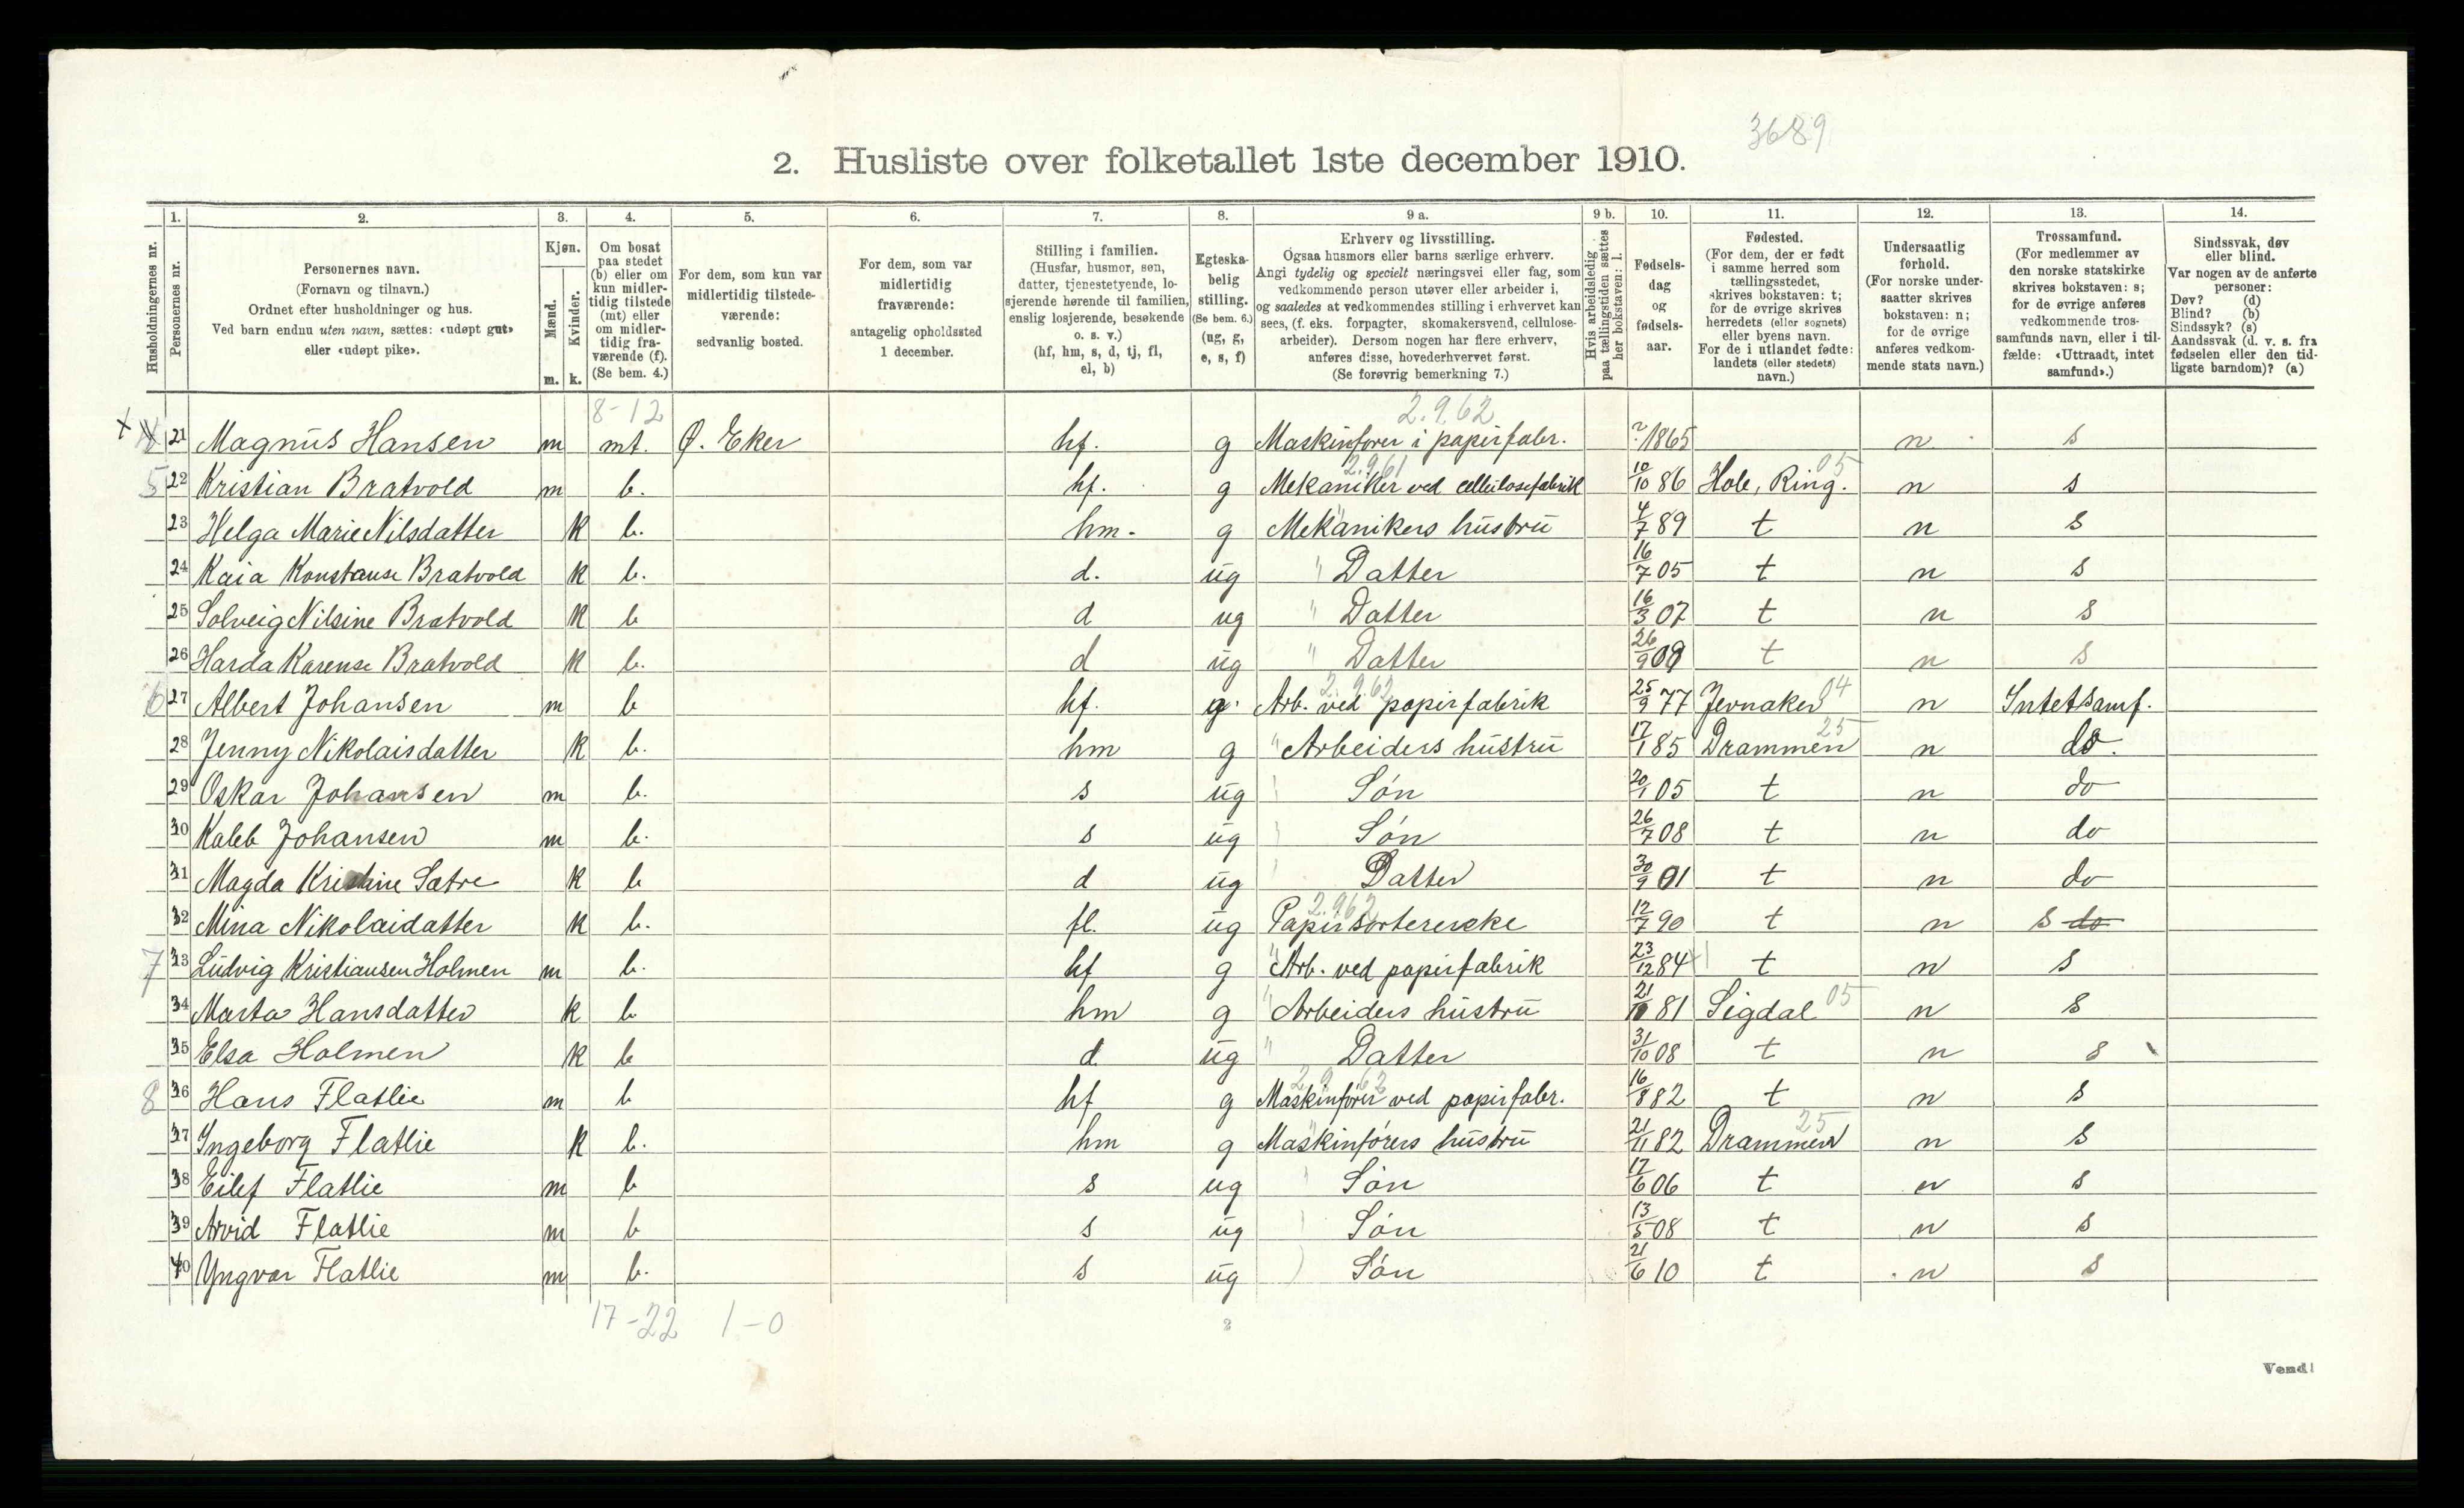 3689
2. Husliste over folketallet 1ste december 1910.
Husholdningernes nr.
1. Personernes nr.
2. Personernes navn. (Fornavn og tilnavn.) Ordnet efter husholdninger og hus. Ved barn endnu uten navn, sættes: «udøpt gut» eller «udøpt pike».
3. Kjøn. Mænd. m. Kvinder. k.
4. Om bosat paa stedet (b) eller om kun midlertidig tilstede (mt) eller om midlertidig fraværende (f). (Se bem. 4.)
5. For dem, som kun var midlertidig tilstedeværende: sedvanlig bosted.
6. For dem, som var midlertidig fraværende: antagelig opholdssted 1 december.
7. Stilling i familien. (Husfar, husmor, søn, datter, tjenestetyende, losjerende hørende til familien, enslig losjerende, besøkende o. s. v.) (hf, hm, s, d, tj, fl, el, b)
8. Egteskabelig stilling. (Se bem. 6.) (ug, g, e, s, f)
9 a. Erhverv og livsstilling. Ogsaa husmors eller barns særlige erhverv. Angi tydelig og specielt næringsvei eller fag, som vedkommende person utøver eller arbeider i, og saaledes at vedkommendes stilling i erhvervet kan sees, (f. eks. forpagter, skomakersvend, cellulosearbeider). Dersom nogen har flere erhverv, anføres disse, hovederhvervet først. (Se forøvrig bemerkning 7.)
9 b. Hvis arbeidsledig paa tællingstiden sættes her bokstaven: l.
10. Fødselsdag og fødselsaar.
11. Fødested. (For dem, der er født i samme herred som tællingsstedet, skrives bokstaven: t; for de øvrige skrives herredets (eller sognets) eller byens navn. For de i utlandet fødte: landets (eller stedets) navn.)
12. Undersaatlig forhold. (For norske undersaatter skrives bokstaven: n; for de øvrige anføres vedkommende stats navn.)
13. Trossamfund. (For medlemmer av den norske statskirke skrives bokstaven: s; for de øvrige anføres vedkommende trossamfunds navn, eller i tilfælde: «Uttraadt, intet samfund».)
14. Sindssvak, døv eller blind. Var nogen av de anførte personer: Døv? (d) Blind? (b) Sindssyk? (s) Aandssvak (d. v. s. fra fødselen eller den tidligste barndom)? (a)
8-12 2.9.62
x 21 Magnus Hansen m mt. Ø. Eker hf. g Maskinfører i papirfabr. ? 1865 n s
5 22 Kristian Bratvold m b. hf. g Mekaniker ved cellulosefabrik 2.961 10/10 86 Hole, Ring. 05 n s
23 Helga Marie Nilsdatter k b. hm. g Mekanikers hustru 4/7 89 t n s
24 Kaia Konstanse Bratvold k b. d. ug " Datter 16/7 05 t n s
25 Solveig Nilsine Bratvold k b d ug " Datter 16/3 07 t n s
26 Harda Karense Bratvold k b. d ug " Datter 26/9 09 t n s
6 27 Albert Johansen m b hf. g. Arb. ved papirfabrik 2.962 25/9 77 Jevnaker 04 n Intet samf.
28 Jenny Nikolaisdatter k b. hm g " Arbeiders hustru 17/1 85 Drammen 25 n do.
29 Oskar Johansen m b. s ug Søn 20/1 05 t n do
30 Kaleb Johansen m b. s ug Søn 26/7 08 t n do
31 Magda Kristine Satre k b d ug Datter 30/9 01 t n do
32 Mina Nikolaidatter k b. fl. ug Papirsortererske 2.962 12/7 90 t n s do
7 33 Ludvig Kristiansen Holmen m b. hf g " Arb. ved papirfabrik 23/12 84 t n s
34 Marta Hansdatter k b hm g " Arbeiders hustru 21/10 81 Sigdal 05 n s
35 Elsa Holmen k b d. ug " Datter 31/10 08 t n s
8 36 Hans Flatlie m b hf g Maskinfører ved papirfabr. 2.9.62 16/8 82 t n s
37 Ingeborg Flatlie k b. hm g Maskinførers hustru 21/11 82 Drammen 25 n s
38 Eilef Flatlie m b s ug " Søn 17/6 06 t n s
39 Arvid Flatlie m b s ug Søn 13/5 08 t n s
40 Yngvar Flatlie m b. s ug Søn 21/6 10 t n s
17-22 1-0
2
Vend!